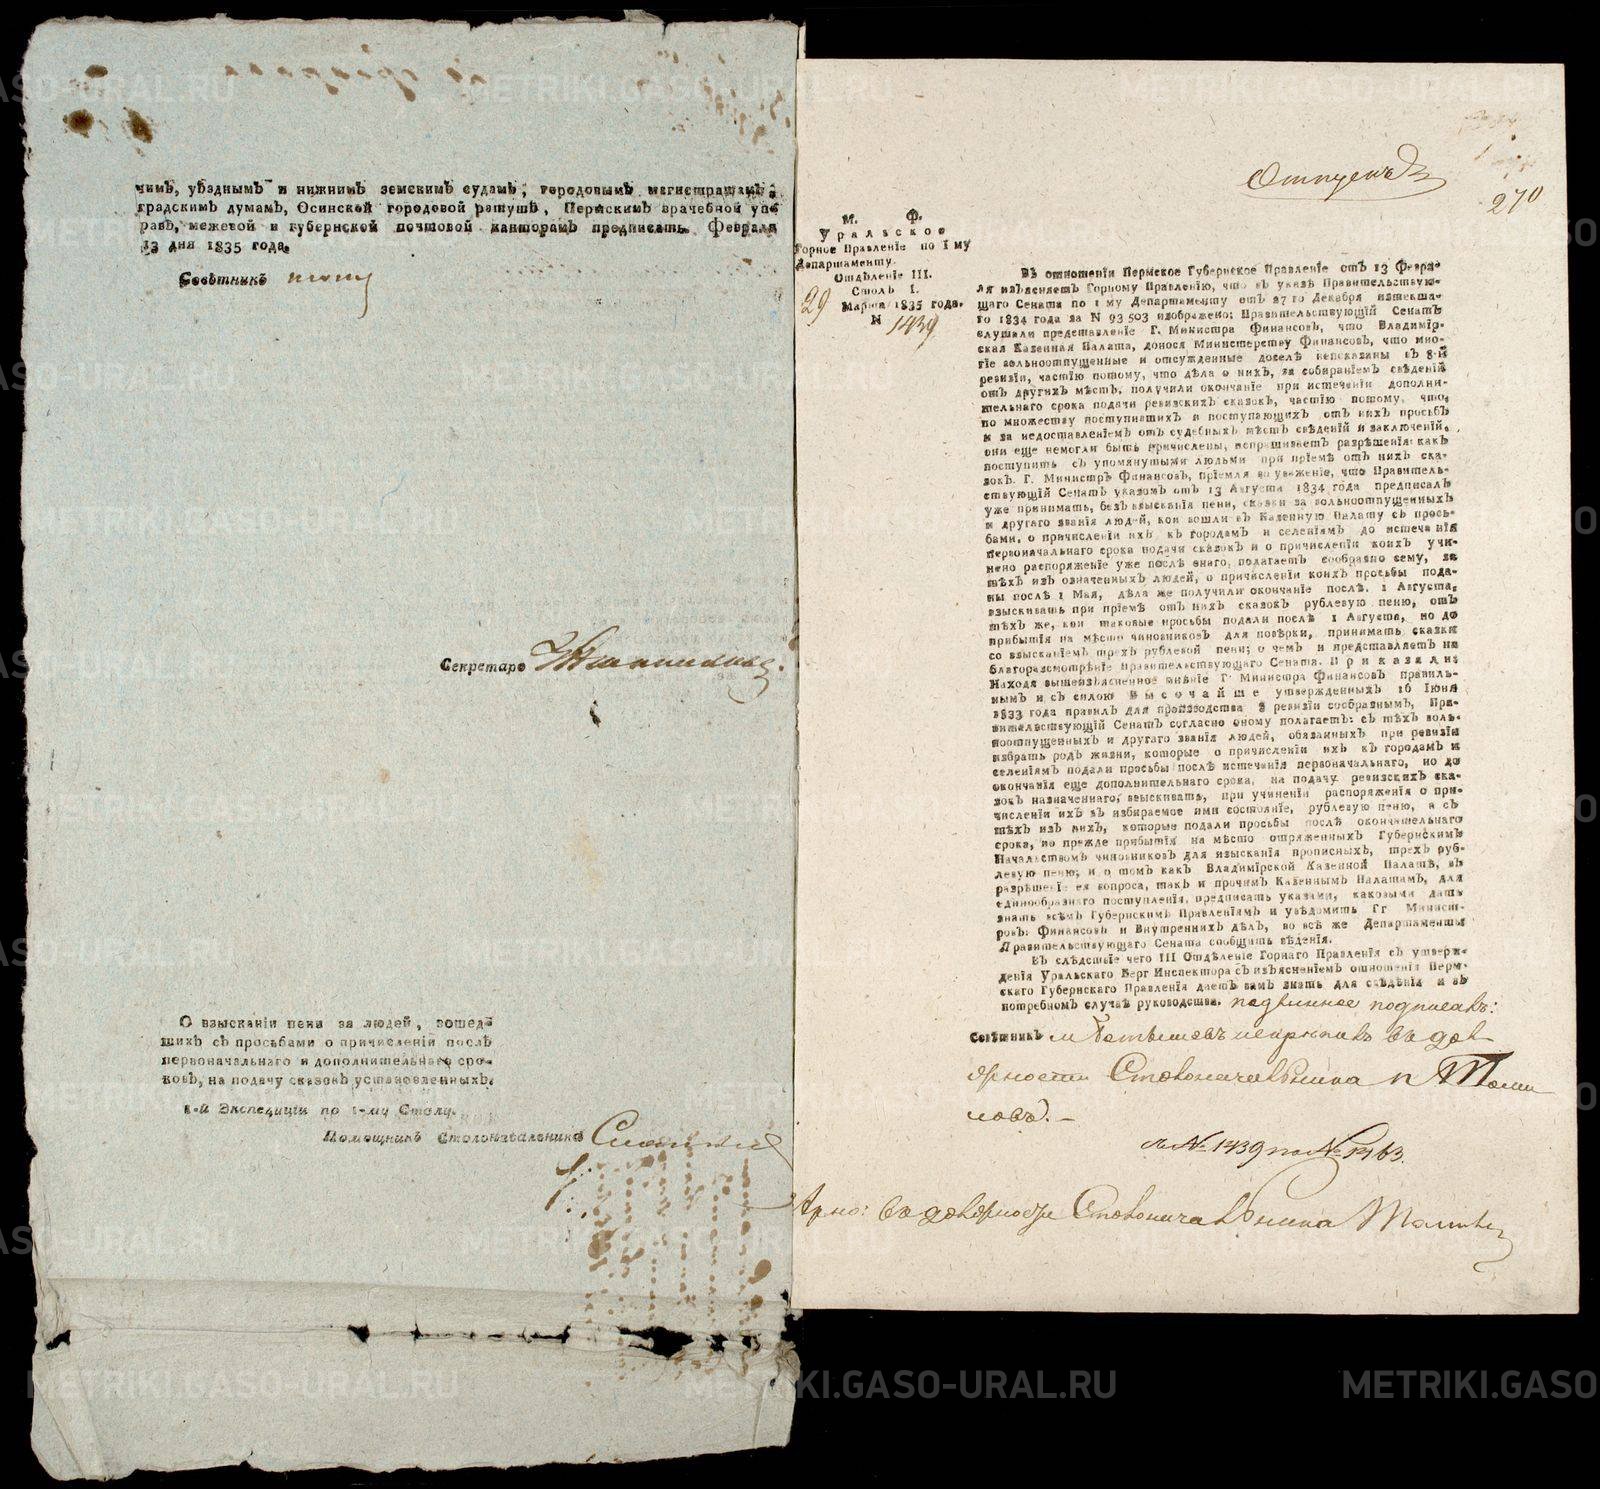 чимъ, уѣзднымъ и нижнимъ земскимъ судамъ, городовымъ магистрашамъ,
градскимъ думамъ, Осинской городовой рашушѣ, Пермскимъ врачебной уп-
равѣ, межевой и губернской почтовой конторамъ предписать. Февраля
13 дня 1835 года.
Совѣтникъ
Секретарь
О взысканіи пени за людей, вошед-
шихъ съ просьбами о причисленіи послѣ
первоначальнаго и дополнительнаго сро-
ковъ, на подачу сказокъ установленныхъ.
1-й Экспедиціи по 1-му Столу.
Помощникъ Столоначальника
270
М. Ф.
Уральское
Горное Правленіе по I му
Департаменту.
Отдѣленіе III.
Столъ I.
29 Марта 1835 года.
N 1439
Въ отношеніи Пермское Губернское Правленіе отъ 13 Февра-
ля изъясняетъ Горному Правленію, что въ указѣ Правительствую-
щаго Сената по 1 му Департаменту отъ 27 го Декабря истекша-
го 1834 года за N 93 503 изображено: Правительствующій Сенатъ
слушали представленіе Г. Министра Финансовъ, что Владимір-
ская Казенная Палата, донося Министерству Финансовъ, что мно-
гіе вольноотпущенные и отсужденные доселѣ непоказаны въ 8-й
ревизіи, частію потому, что дѣла о нихъ, за собираніемъ свѣденій
отъ другихъ мѣстъ, получили окончаніе при истеченіи дополни-
тельнаго срока подачи ревизскихъ сказокъ, частію потому, что,
по множеству поступившихъ и поступающихъ отъ нихъ просьбъ
и за недоставленіемъ отъ судебныхъ мѣстъ свѣденій и заключеній,
они еще немогли быть причислены, испрашиваетъ разрѣшенія: какъ
поступить съ упомянутыми людьми при пріемѣ отъ нихъ ска-
зокъ. Г. Министръ Финансовъ, пріемля во уваженіе, что Правитель-
ствующій Сенатъ указомъ отъ 13 Августа 1834 года предписалъ
уже принимать, безъ взысканія пени, сказки за вольноотпущенныхъ
и другаго званія людей, кои вошли въ Казенную Палату съ прось-
бами, о причисленіи ихъ къ городамъ и селеніямъ до истеченія
первоначальнаго срока подачи сказокъ и о причисленіи коихъ учи-
нено распоряженіе уже послѣ онаго, полагаетъ сообразно сему, за
тѣхъ изъ означенныхъ людей, о причисленіи коихъ просьбы пода-
ны послѣ 1 Мая, дѣла же получили окончаніе послѣ 1 Августа,
взыскивать при пріемѣ отъ нихъ сказокъ рублевую пеню, отъ
тѣхъ же, кои таковые просьбы подали послѣ 1 Августа, но до
прибытія на мѣсто чиновниковъ для повѣрки, принимать сказки
со взысканіемъ трехъ рублевой пени; о чемъ и представляетъ на
благоразсмотрѣніе Правительствующаго Сената. Приказали:
Находя вышеизъясненное мнѣніе Г. Министра Финансовъ правиль-
нымъ и съ силою Высочайше утвержденныхъ 16 Іюня
1833 года правилъ для производства 8 ревизіи сообразнымъ, Пра-
вительствующій Сенатъ согласно оному полагаетъ: съ тѣхъ воль-
ноотпущенныхъ и другаго званія людей, обязанныхъ при ревизіи
избрать родъ жизни, которые о причисленіи ихъ къ городамъ и
селеніямъ подали просьбы послѣ истеченія первоначальнаго, но до
окончанія еще дополнительнаго срока, на подачу ревизскихъ ска-
зокъ назначеннаго, взыскивать, при учиненіи распоряженія о при-
численіи ихъ въ избираемое ими состояніе, рублевую пеню, а съ
тѣхъ изъ нихъ, которые подали просьбы послѣ окончательнаго
срока, но прежде прибытія на мѣсто отряженныхъ Губернскимъ
Начальствомъ чиновниковъ для изысканія прописныхъ, трехъ руб-
левую пеню; и о томъ какъ Владимірской Казенной Палатѣ, въ
разрѣшеніе ея вопроса, такъ и прочимъ Казеннымъ Палатамъ, для
единообразнаго поступленія, предписать указами, каковыми дать
знать всѣмъ Губернскимъ Правленіямъ и увѣдомить Гг. Минист-
ровъ: Финансовъ и Внутреннихъ дѣлъ, во всѣ же Департаменты
Правительствующаго Сената сообщить вѣденія.
Въ слѣдствіе чего III Отдѣленіе Горнаго Правленія съ утверж-
денія Уральскаго Берг Инспектора съ изъясненіемъ отношенія Перм-
скаго Губернскаго Правленія даетъ вамъ знать для свѣденія и въ
потребномъ случаѣ руководства. подлинное подписалъ:
Совѣтникъ
Столоначальника
съ № 1439 по № 1463.
Столоначальника